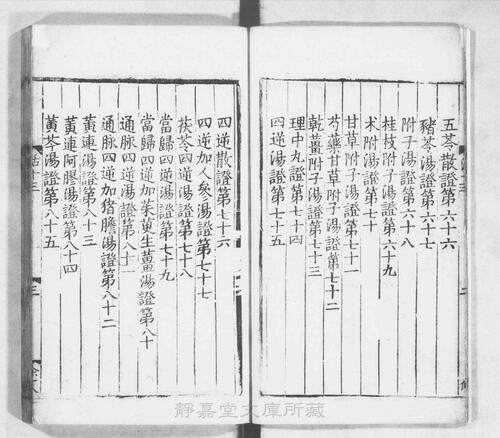 五苓散證第六十六
豬苓湯證第六十七
附子湯證第六十八
桂枝附子湯證第六十九
术附湯證第七十
甘草附子湯證第七十一
芍藥甘草附子湯證第七十二
乾薑附子湯證第七十三
理中丸證第七十四
四逆湯證第七十五
四逆散證第七十六
四逆加人參湯證第七十七
茯苓四逆湯證第七十八
當歸四逆湯證第七十九
當歸四逆加茱萸生薑湯證第八十
通脉四逆湯證第八十一
通脉四逆加猪膽湯證第八十二
黃連湯證第八十三
黃連阿膠湯證第八十四
黃芩湯證第八十五
靜嘉堂文庫所藏